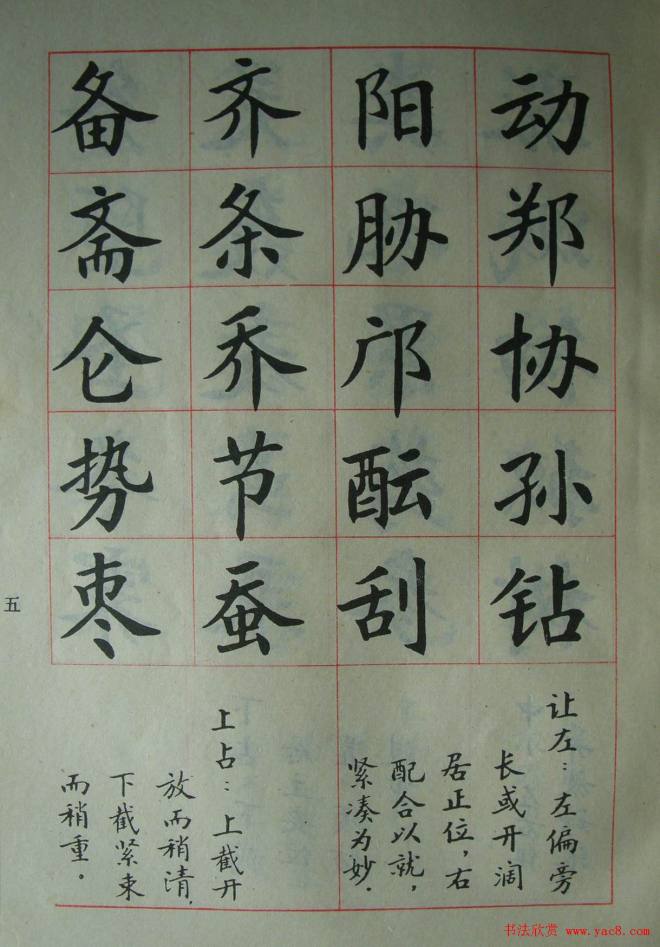 动郑协孙钻
阳胁邝酝刮
齐条乔节蚕
备斋仑势枣
让左：左偏旁
长或开阔
居正位，右
配合以就，
紧凑为妙.
上占：上截开
放而稍清.
下截紧束
而稍重。
五
书法欣赏 www.yac8.com